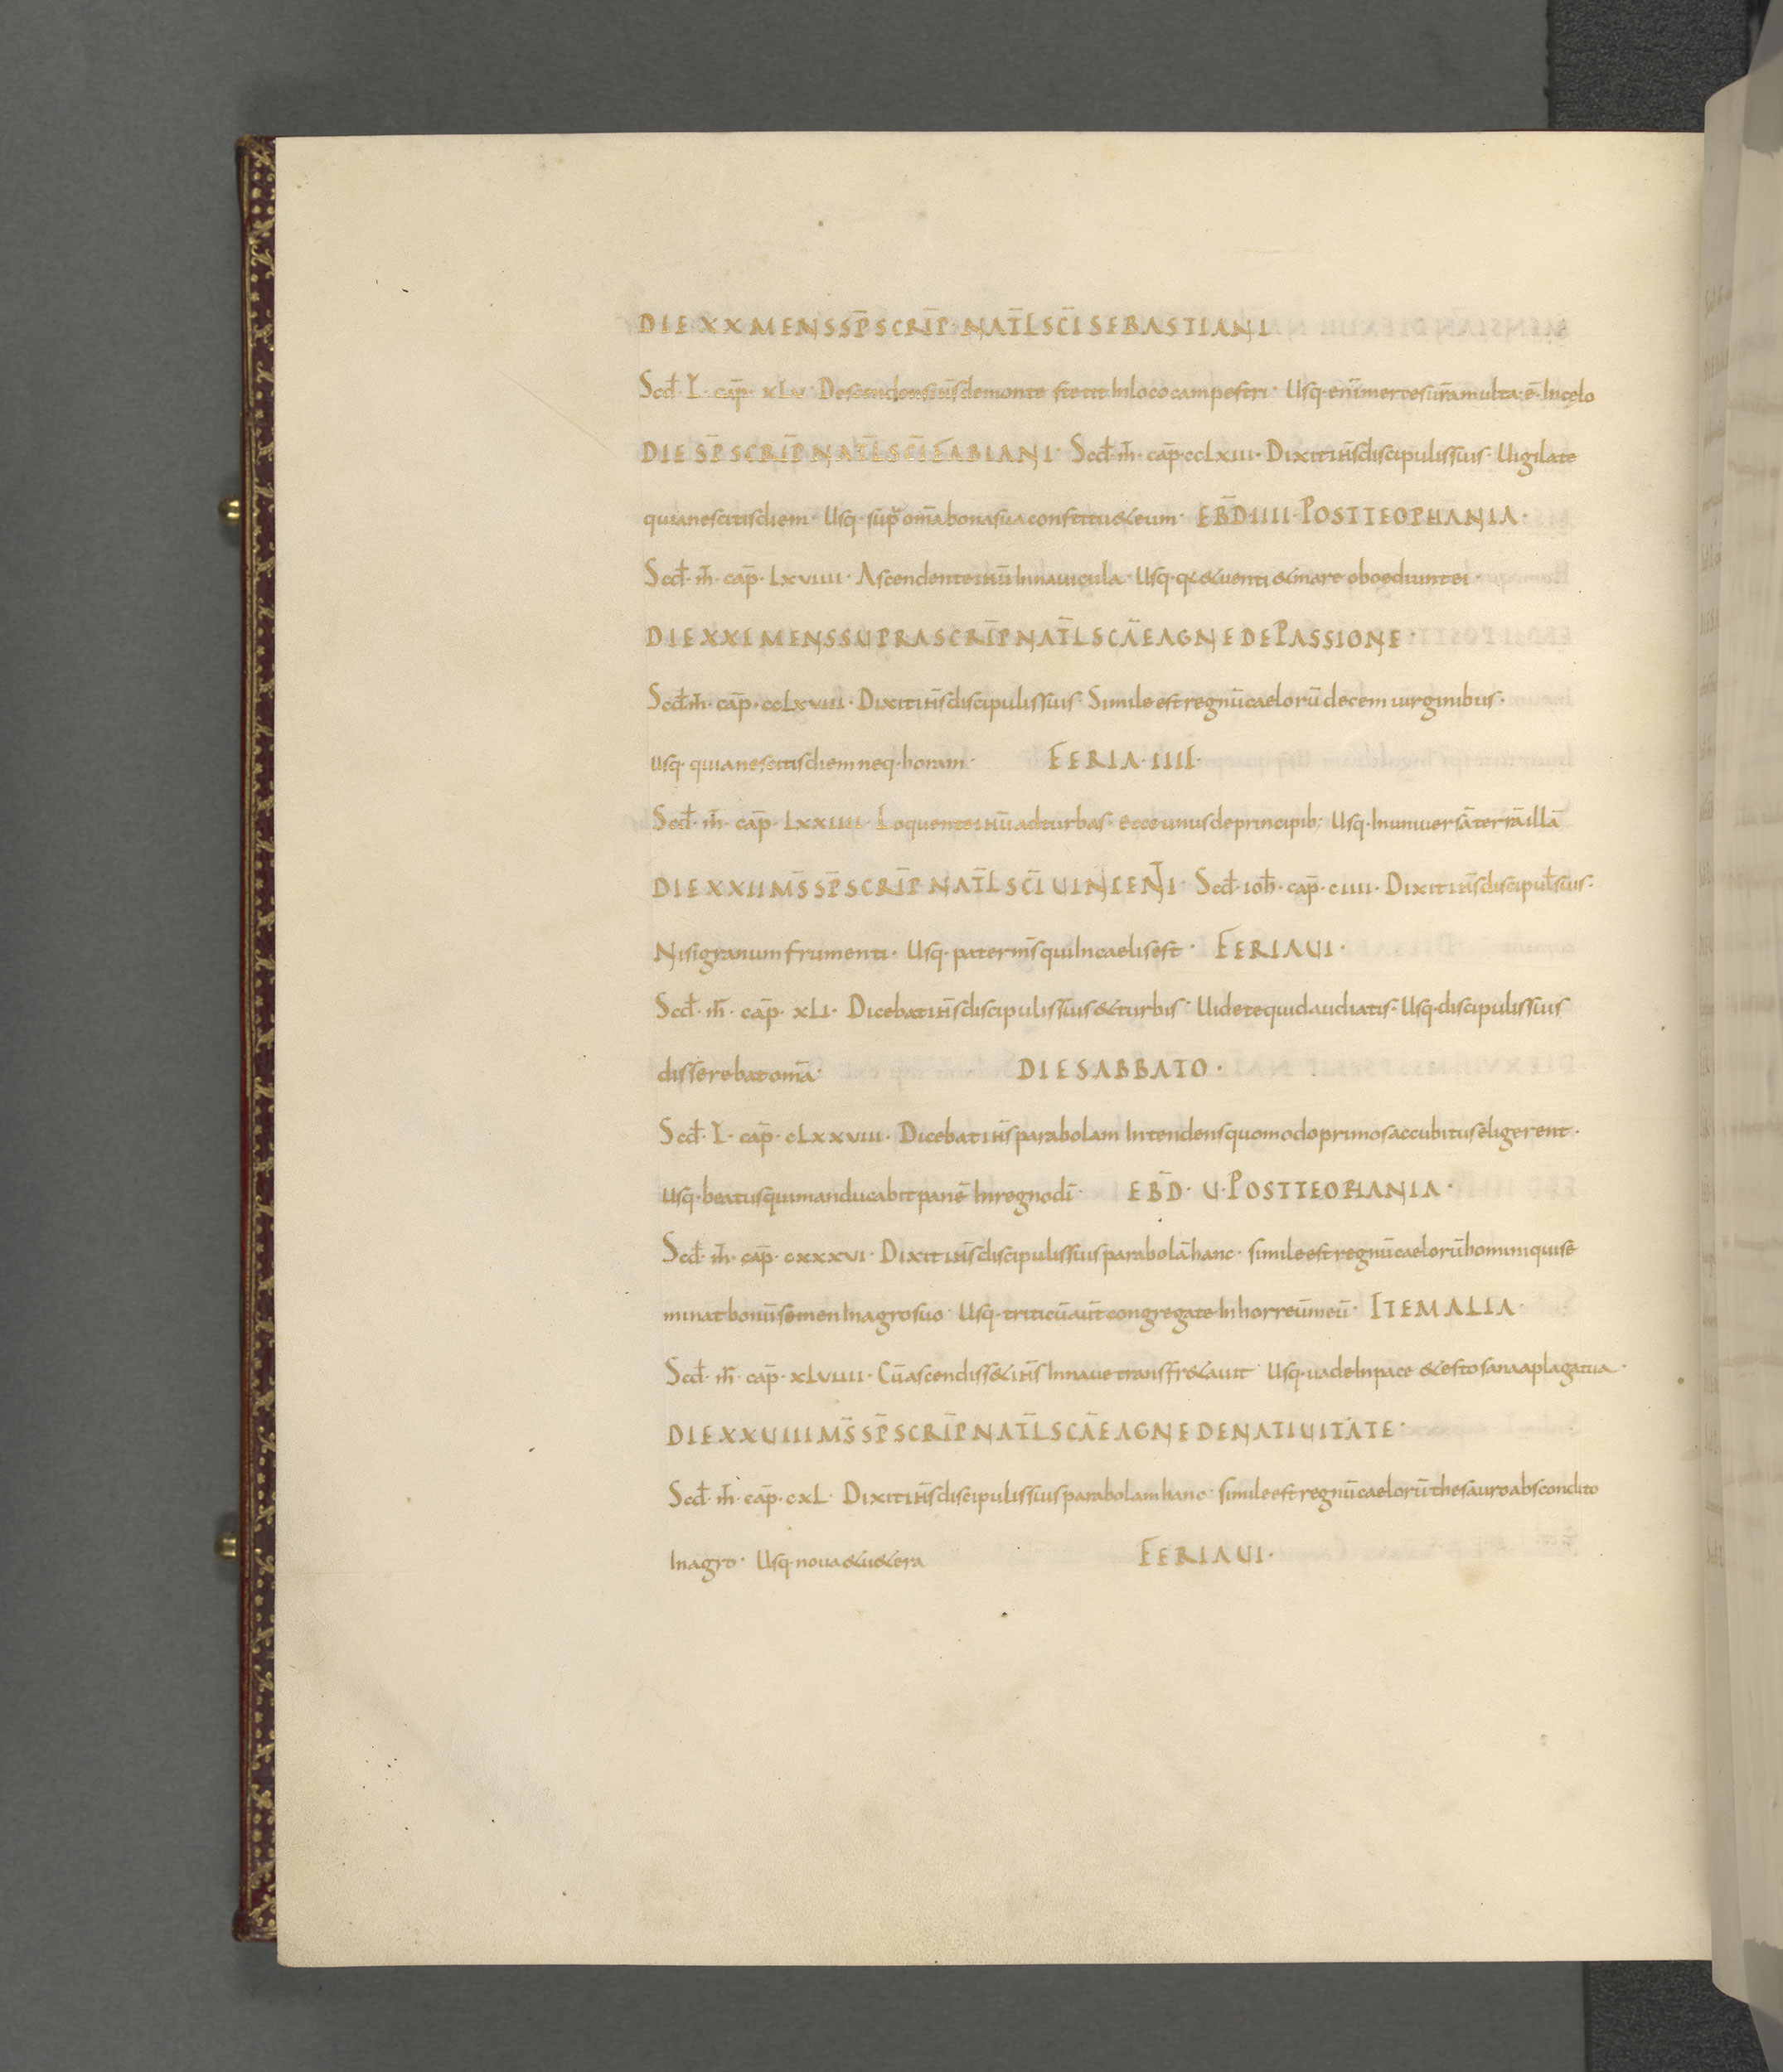 DIE XX MENS SP̄ SCRĪP· NAT̄L SC̄I SEBASTIANI
Scd̄· L· cap̄· xLv· Descendens ih̄s de monte stetit In loco campestri· Usq· enī merces ur̄a multa· ē· In cęlo
DIE SP̄ SCRĪP NAT̄L SC̄I FABIANI· Scd̄· m̄· cap̄· ccLxiii· Dixit ih̄s discipulis suis· Uigilate
quia nescitis diem· Usq· sup̄ om̄a bona sua constitu& eum· EB̄D· IIII· POST TEOPHANIA·
Scd̄· m̄· cap̄· Lxviiii· Ascendente ih̄u In nauicula· Usq· q& uenti & mare oboediunt ei·
DIE XXI MENS SUPRA SCRĪP NAT̄L SCĀE AGNE DE PASSIONE·
Scd̄ m̄· cap̄· ccLxviii· Dixit ih̄s discipulis suis· Simile est regnū caelorū decem uirginibus·
usq· quia nescitis diem neq· horam· FERIA· IIII·
Scd̄· m̄· cap̄· Lxxiiii· Loquente ih̄u ad turbas· ecce unus de principib; Usq· In uniuersā terrā illā
DIE XXII M̄S SP̄ SCRĪP NAT̄L SC̄I UINCENTI· Scd̄· ioh̄· cap̄· ciiii· Dixit ih̄s discipul̄ suis·
Nisi granum frumenti· Usq· pater m̄s qui In caelis est· FERIA UI·
Scd̄· m̄· cap̄· xLi· Dicebat ih̄s discipulis suis & turbis· Uidete quid audiatis· Usq· discipulis suis
disserebat om̄a· DIE SABBATO·
Scd̄· L· cap̄· cLxxviii· Dicebat ih̄s parabolam Intendens quomodo primos accubitus eligerent·
usq· beatus qui manducabit panē In regno dī· EB̄D· U· POST TEOPHANIA·
Scd̄· m̄· cap̄· cxxxvi· Dixit ih̄s discipulis suis parabolā hanc· simile est regnū caelorū homini qui se
minat bonū semen In agro suo· Usq· triticū aūt congregate In horreū meū· ITEM ALIA·
Scd̄· m̄r· cap̄· xLviiii· Cū ascendiss& ih̄s In naue transfr&auit· Usq· uade In pace & esto sana a plaga tua·
DIE XXUIII M̄S SP̄ SCRĪP NAT̄L SCĀE AGNE DE NATIUITATE·
Scd̄· m̄· cap̄· cxL· Dixit ih̄s discipulis suis parabolam hanc· simile est regnū caelorū thesauro abscondito
In agro· Usq· noua & u&era FERIA UI·